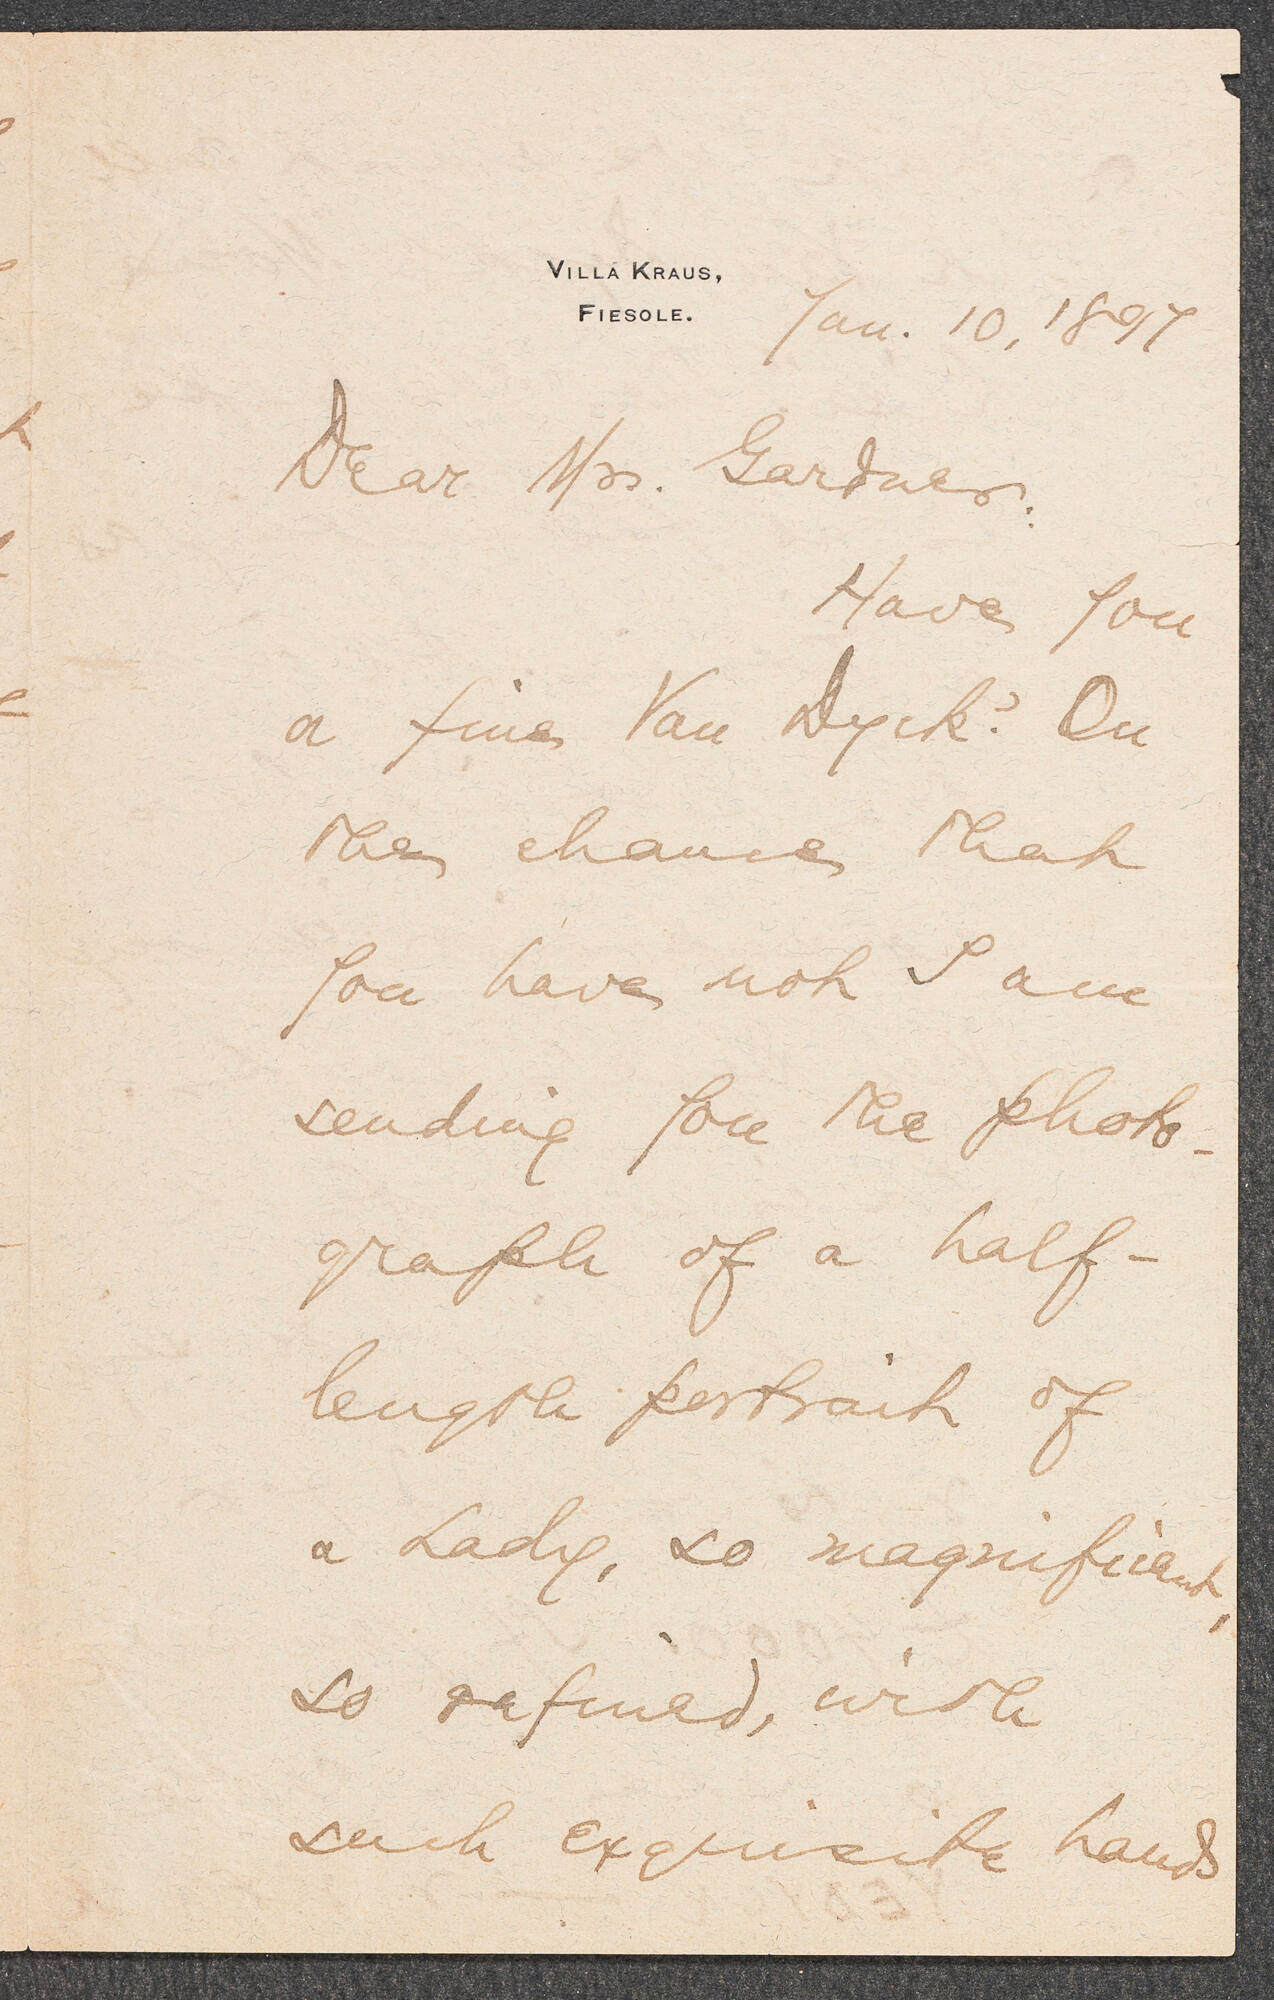 VILLA KRAUS,
FIESOLE.
Jan. 10, 1897
Dear Mrs. Gardner:
Have you
a fine Van Dyck? On
the chance that
you have not I am
sending you the photo-
graph of a half-
length portrait of
a Lady, so magnificent,
so refined, with
such exquisite hands